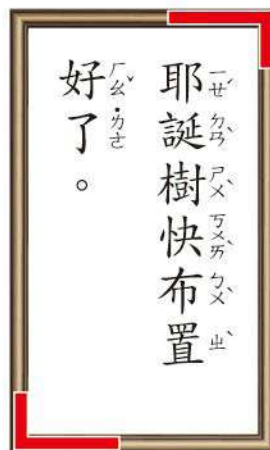 耶誕樹快布置
好了。